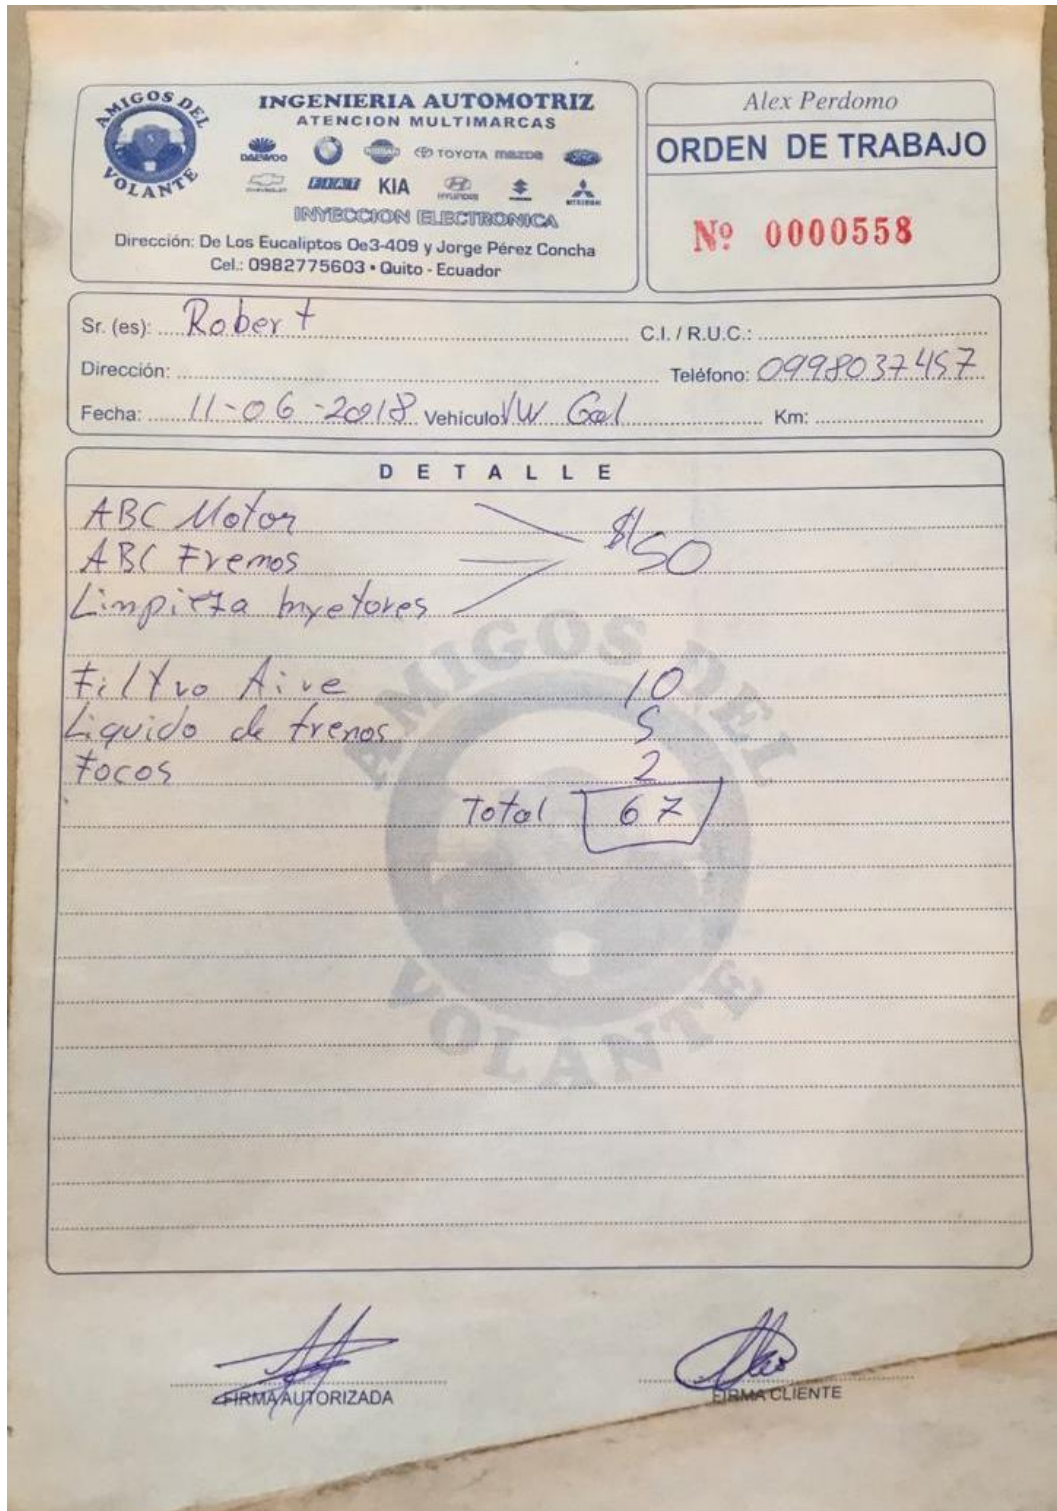 AMIGOS DEL
VOLANTE
INGENIERIA AUTOMOTRIZ
ATENCION MULTIMARCAS
DAEWOO NISSAN TOYOTA mazda
CHEVROLET FIAT KIA HYUNDAI SUZUKI MITSUBISHI
INYECCION ELECTRONICA
Dirección: De Los Eucaliptos Oe3-409 y Jorge Pérez Concha
Cel.: 0982775603 • Quito - Ecuador
Alex Perdomo
ORDEN DE TRABAJO
Nº 0000558
Sr. (es): Robert C.I. / R.U.C.:
Dirección: Teléfono: 0998037457
Fecha: 11-06-2018 Vehículo: VW Gol Km:
DETALLE
ABC Motor
ABC Frenos $50
Limpieza Inyetores
Filtro Aire 10
Liquido de frenos 5
Focos 2
Total 67
AMIGOS DEL
VOLANTE
FIRMA AUTORIZADA FIRMA CLIENTE